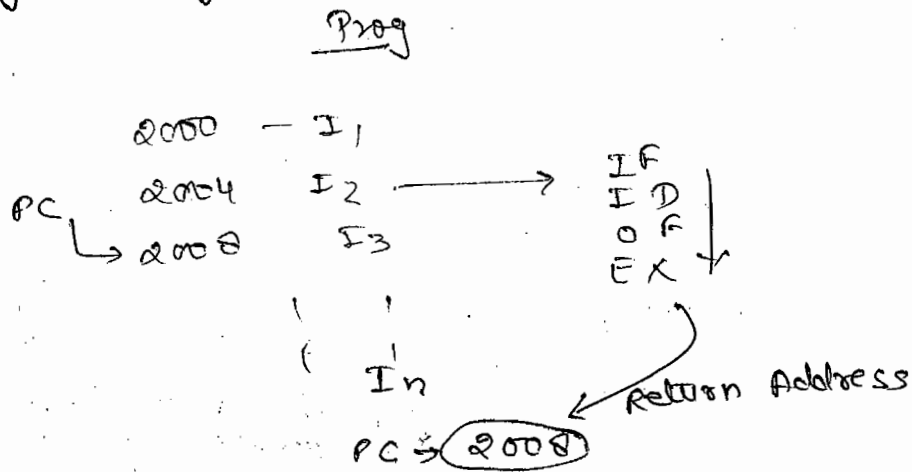 Prog
2000 — I1
2004 I2 → IF
ID
PC → 2008 I3 OF
EX
In
Return Address
PC → 2008